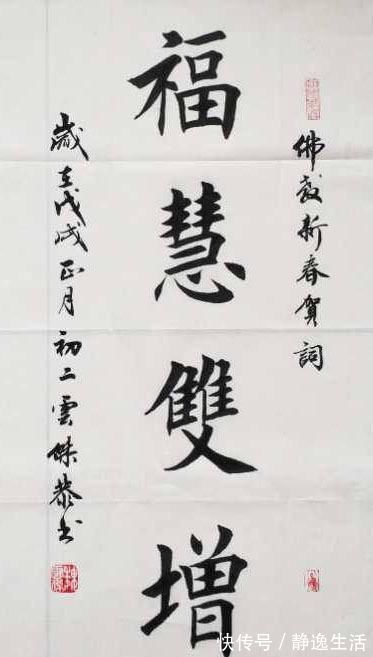 佛教新春賀詞
福慧雙增
歲在戊戌正月初二雲傑恭书
快传号/静逸生活